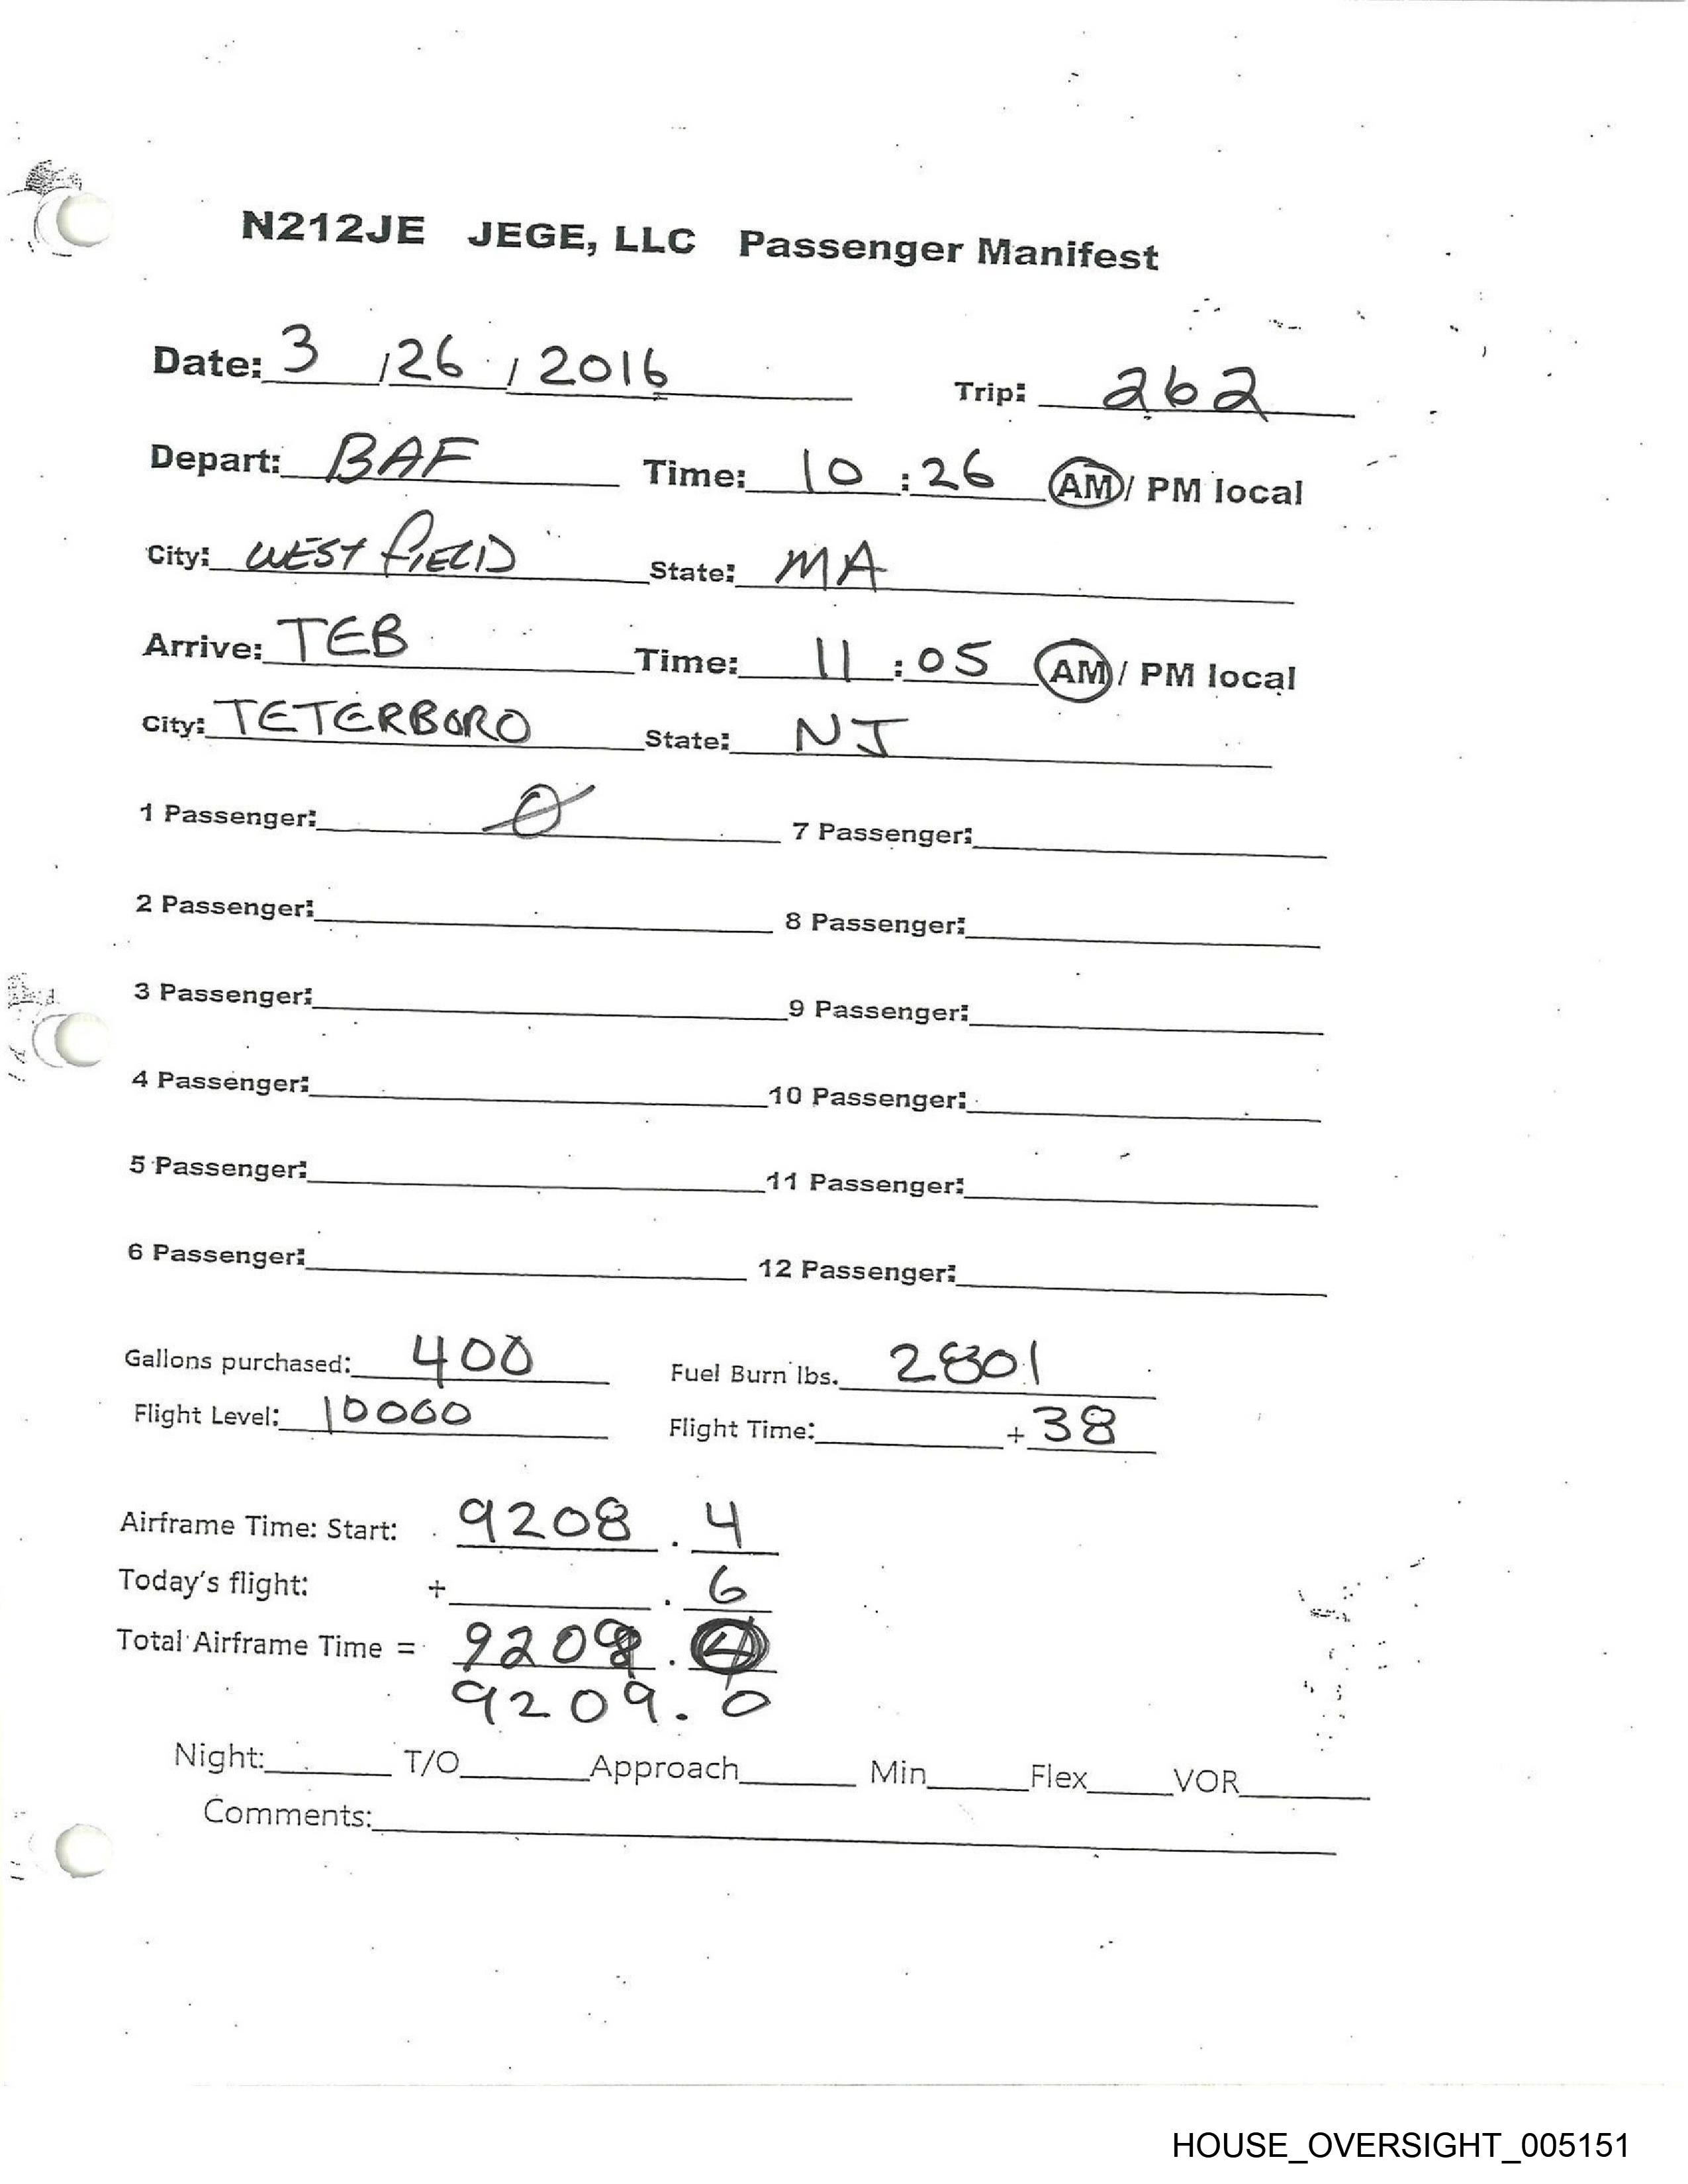 N212JE JEGE, LLC Passenger Manifest
Date: 3 / 26 / 2016 Trip: 262
Depart: BAF Time: 10 : 26 AM / PM local
City: WESTFIELD State: MA
Arrive: TEB Time: 11 : 05 AM / PM local
City: TETERBORO State: NJ
1 Passenger: Ø 7 Passenger:
2 Passenger: 8 Passenger:
3 Passenger: 9 Passenger:
4 Passenger: 10 Passenger:
5 Passenger: 11 Passenger:
6 Passenger: 12 Passenger:
Gallons purchased: 400 Fuel Burn lbs. 2801
Flight Level: 10000 Flight Time: + 38
Airframe Time: Start: 9208 . 4
Today's flight: + . 6
Total Airframe Time =
9209.0
Night: T/O Approach Min Flex VOR
Comments:
HOUSE_OVERSIGHT_005151